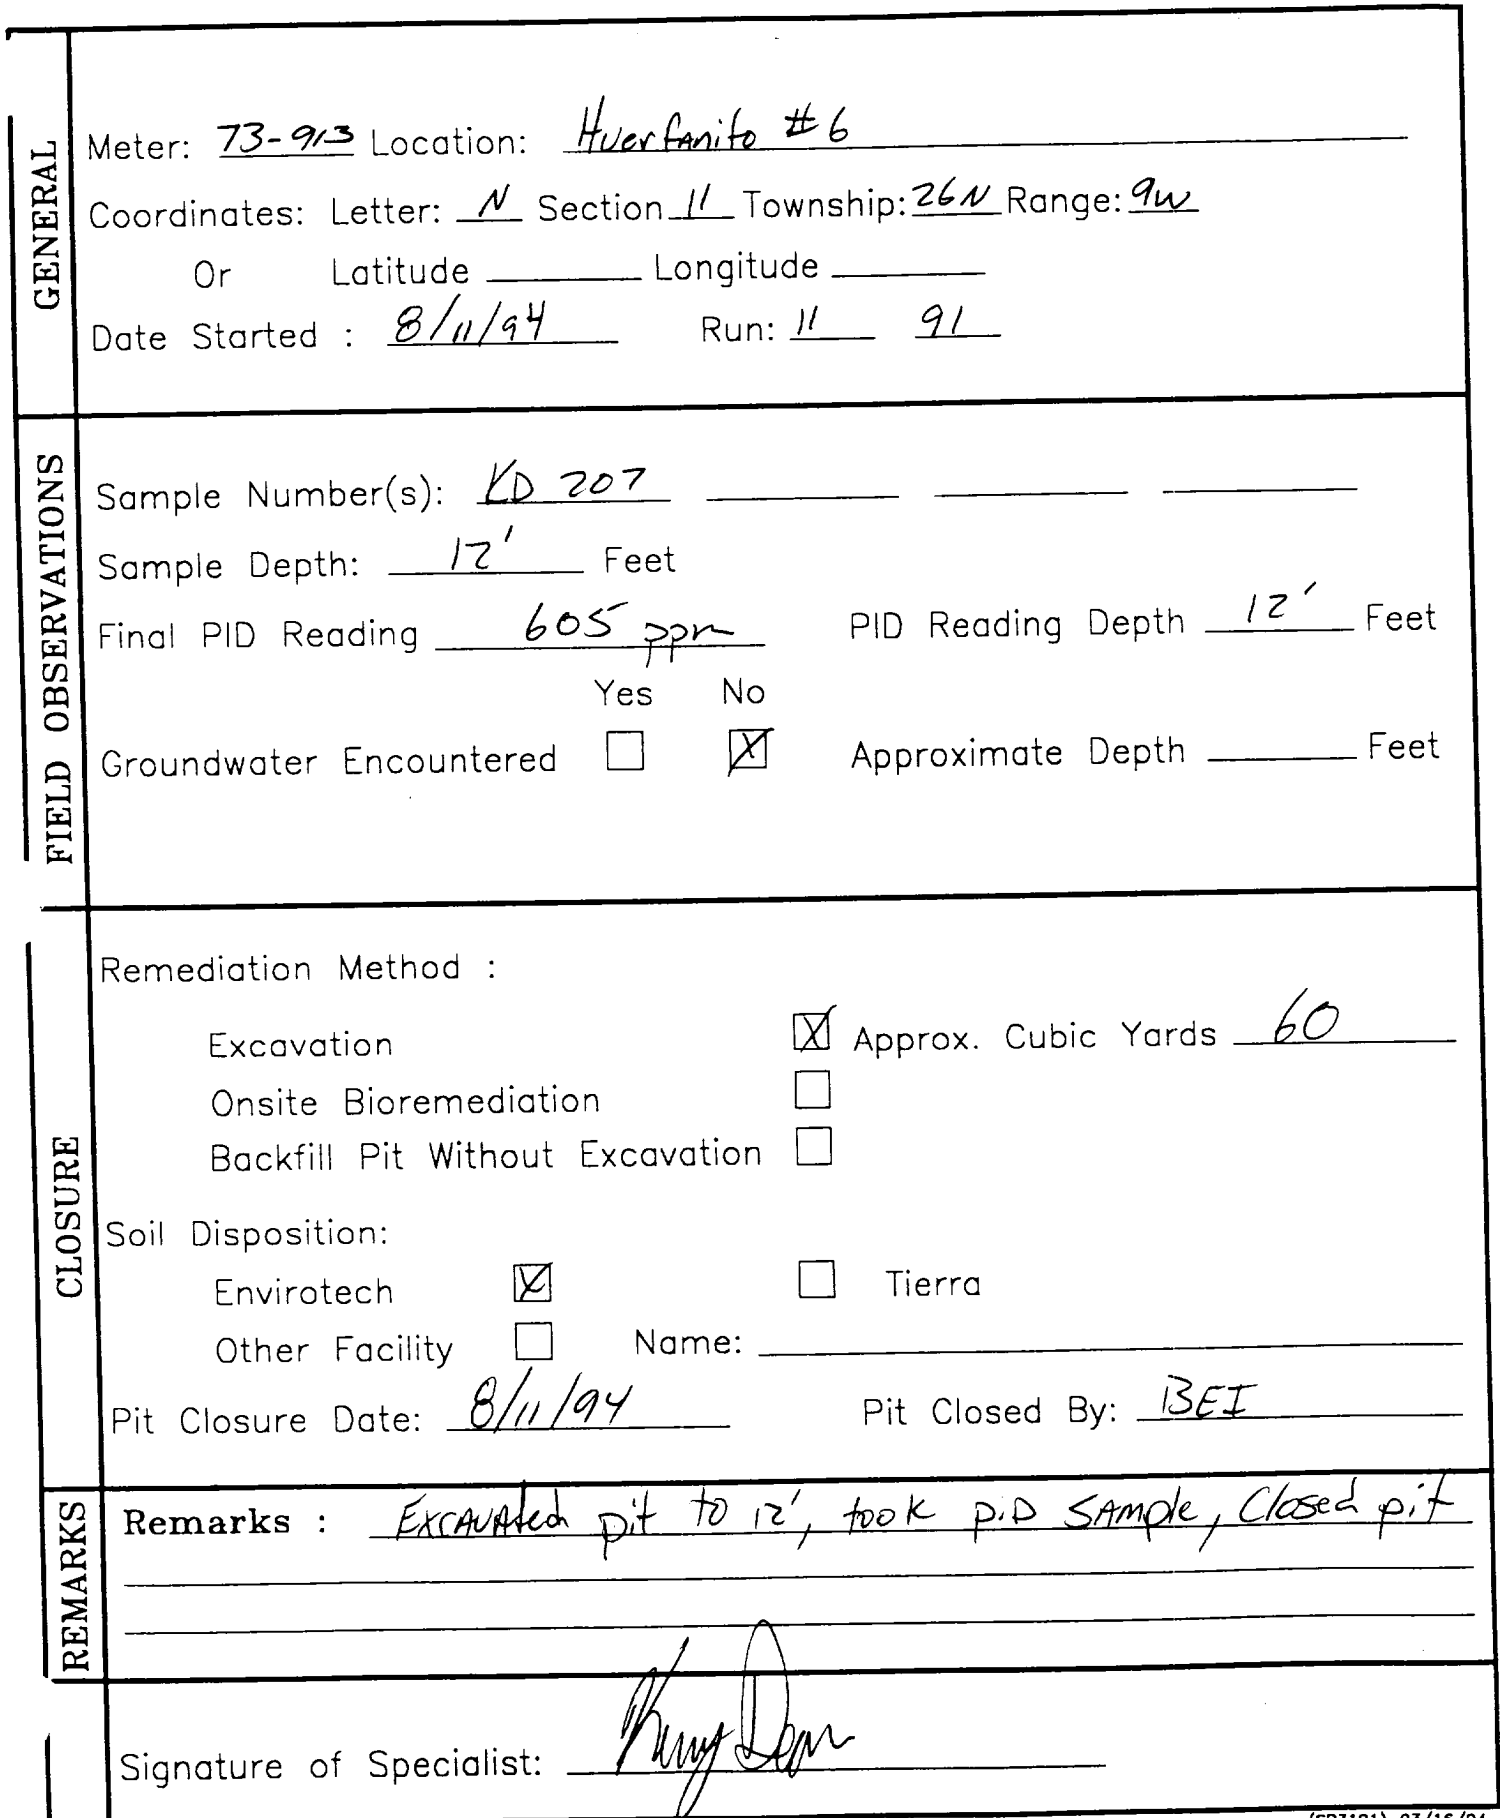 GENERAL
Meter: 73-913 Location: Huerfanito #6
Coordinates: Letter: N Section 11 Township: 26N Range: 9W
Or Latitude Longitude
Date Started : 8/11/94 Run: 11 91
FIELD OBSERVATIONS
Sample Number(s): KD 207
Sample Depth: 12' Feet
Final PID Reading 605 ppm PID Reading Depth 12' Feet
Yes No
Groundwater Encountered X Approximate Depth Feet
CLOSURE
Remediation Method :
Excavation X Approx. Cubic Yards 60
Onsite Bioremediation
Backfill Pit Without Excavation
Soil Disposition:
Envirotech X Tierra
Other Facility Name:
Pit Closure Date: 8/11/94 Pit Closed By: BEI
REMARKS
Remarks : Excavated pit to 12', took PID Sample, Closed pit
Signature of Specialist: Dean
03/16/94